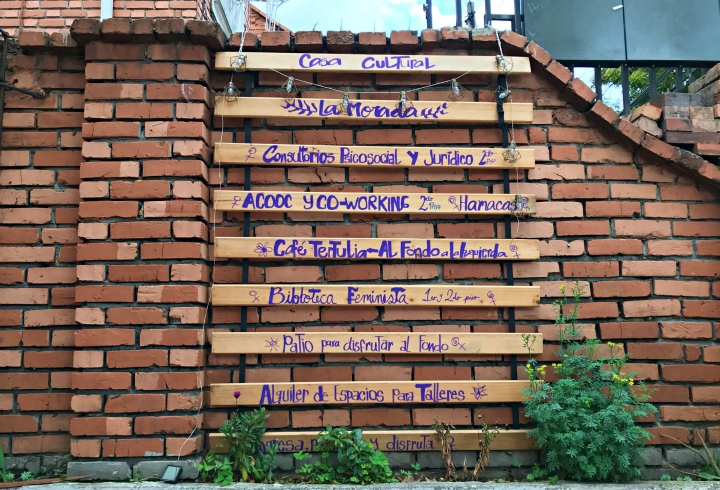 Casa Cultural
La Morada
Consultorios Psicosocial y Jurídico 2do Piso
ACODC y CO-WORKING 2do Piso Hamacas
Café Tertulia - Al Fondo a la Izquierda
Biblioteca Feminista 1er y 2do piso
Patio para disfrutar al Fondo
Alquiler de Espacios Para Talleres
y disfruta